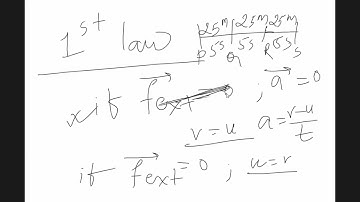 1st law
25m 25m 25m
P 5s Q 5s R 5s S
if fext = 0 ; a = 0
v = u a = v-u/t
if fext = 0 ; u = v